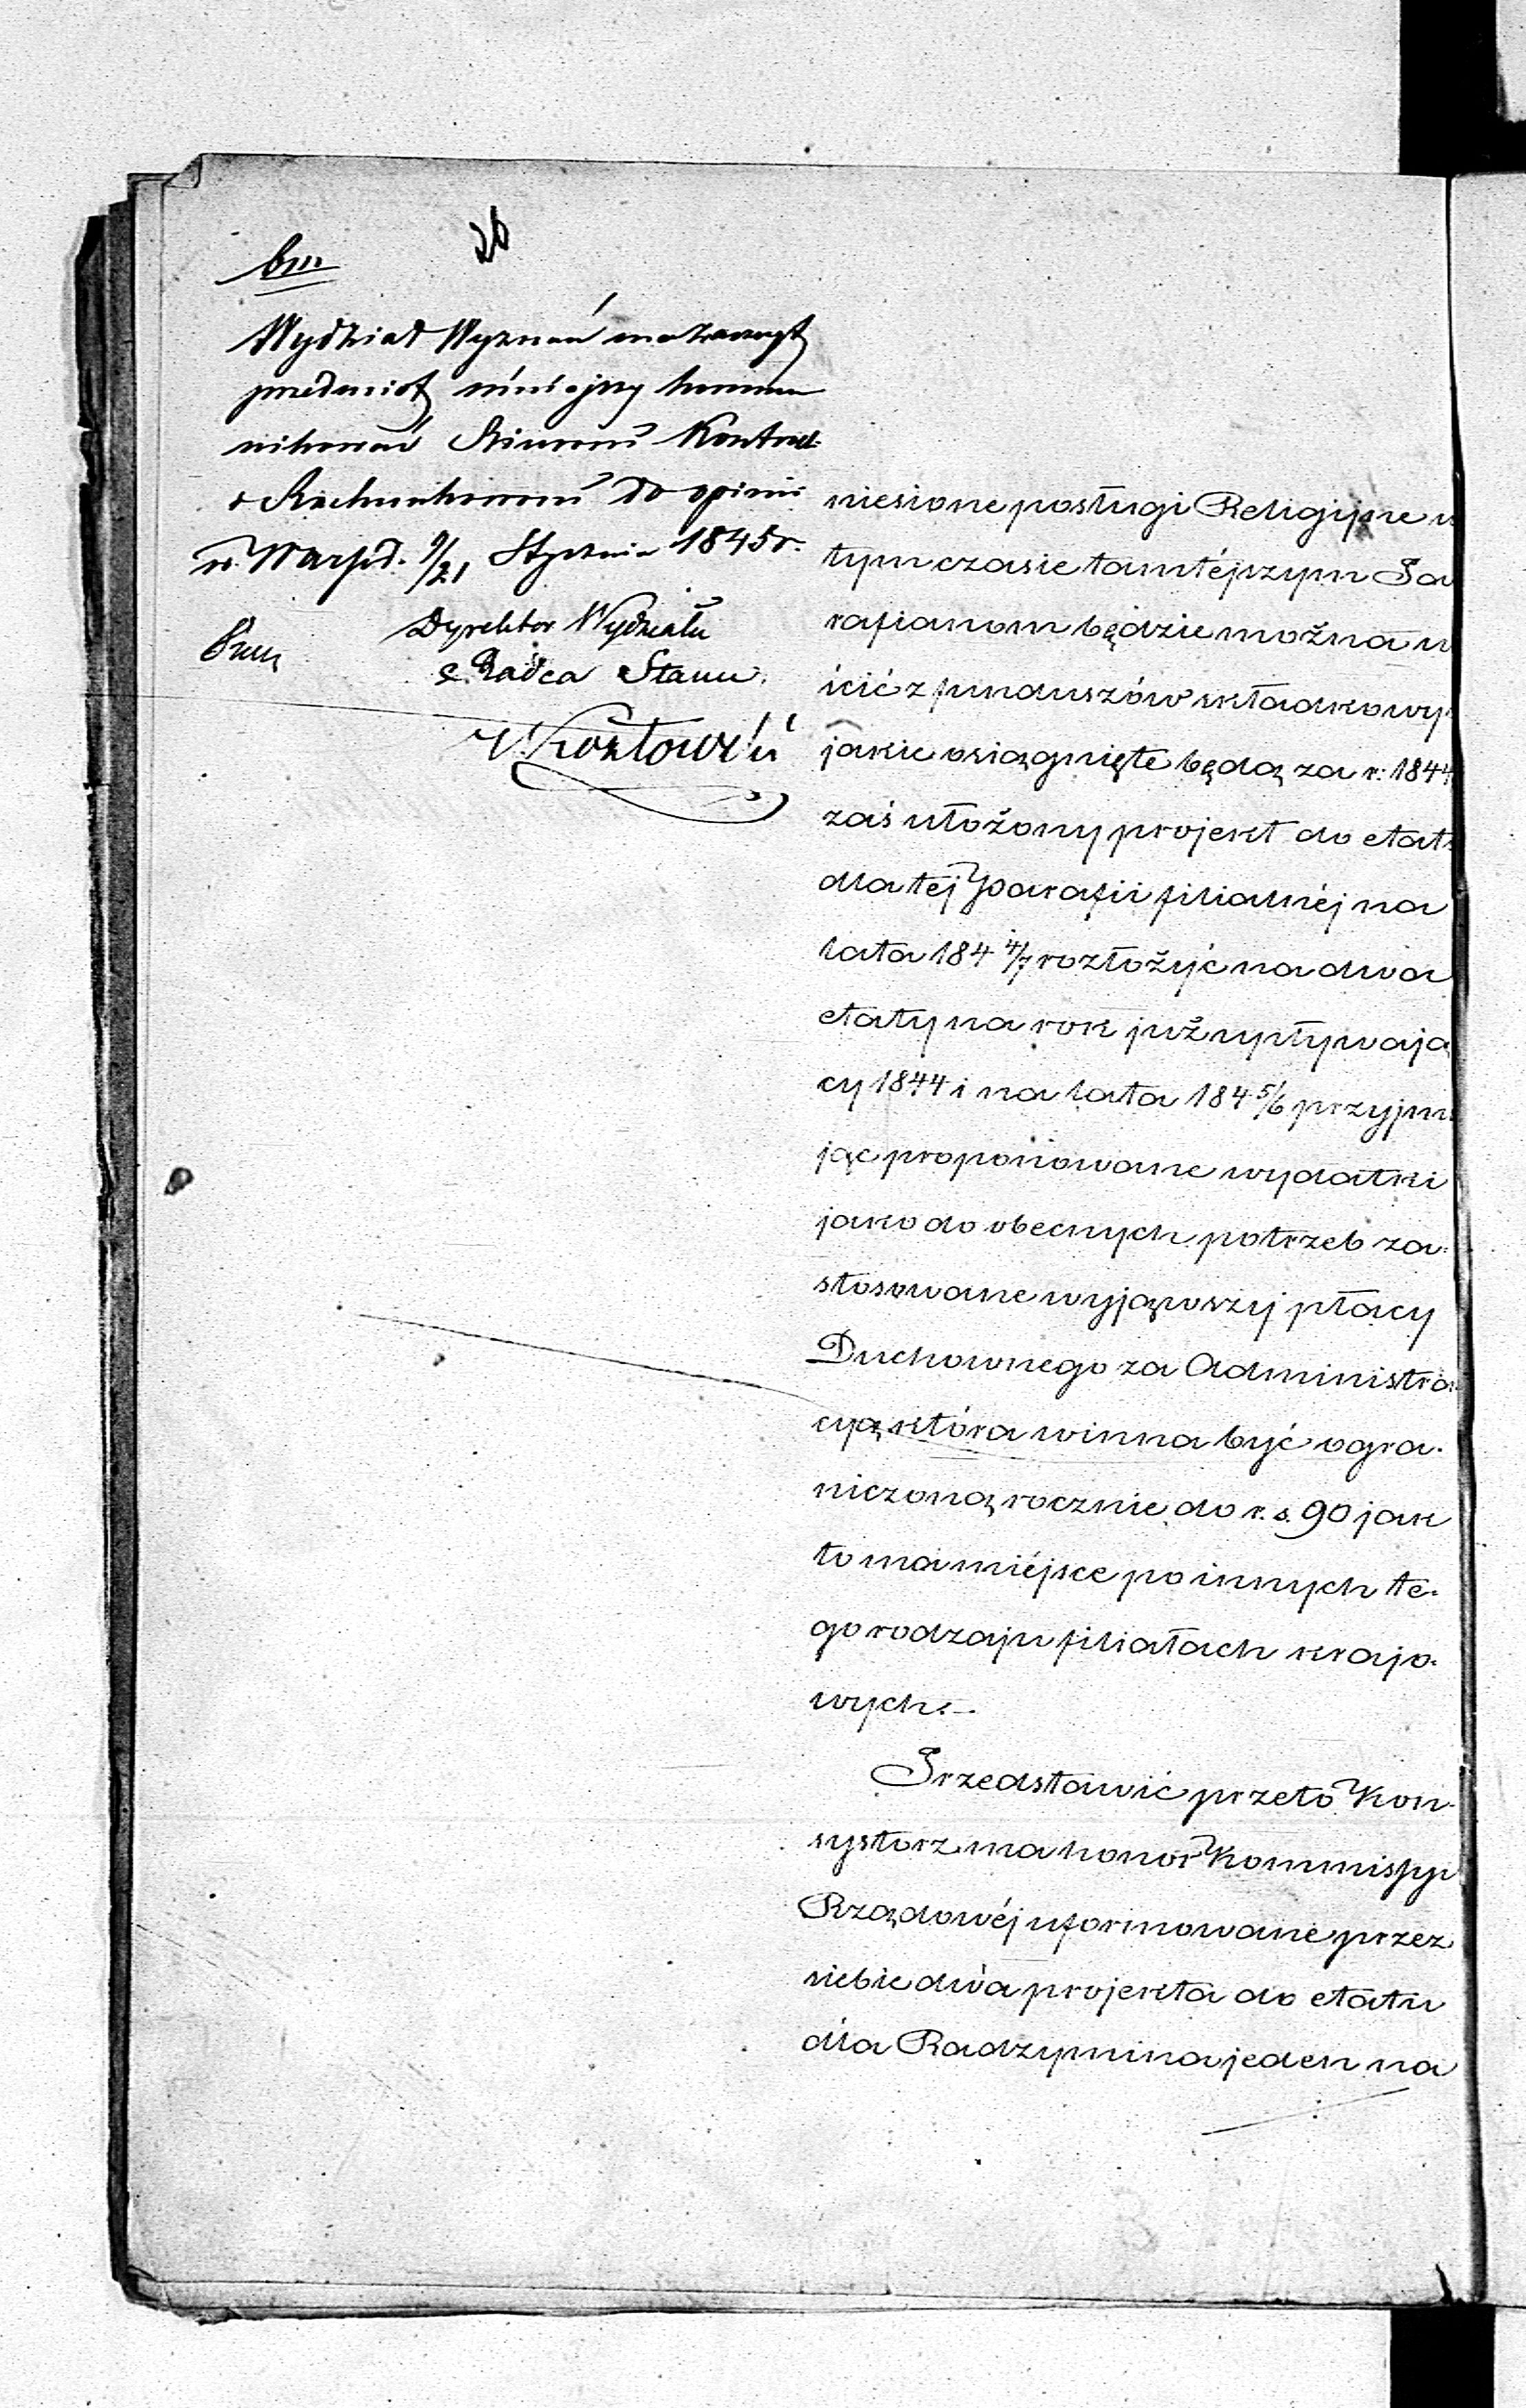 26
Wydział Wyznań ma zaszczyt
przedmiot niniejszy kommu
nikować Biurowi Kontroli
i Rachunkowemu do opinii
w Warsz. d. 9/21 Stycznia 1845 r.
Dyrektor Wydziału
Radca Stanu
Kozłowski
niesione posługi Religijne w
tym czasie tamtéjszym Pa
rafianom będzie można u
iścić z funduszów składkowy
jakie osiągnięte będą za r: 1844
zaś ułożony projekt do etat
dla téj Parafii filialnéj na
lata 184 4/7 rozłożyć na dwa
etaty na rok już upływają
cy 1844 i na lata 184 5/6 przyjmu
jąc proponowane wydatki
jako do obecnych potrzeb za-
stosowane wyjąwszy płacy
Duchownego za Administra
cyą, która winna być ogra-
niczoną rocznie do r. s. 90 jak
to ma miéjsce po innych te-
go rodzaju filiałach krajo-
wych.–
Przedstawić przeto Kon-
systorz ma honor Kommissyi
Rządowéj uformowane przez
siebie dwa projekta do etatu
dla Radzymina jeden na